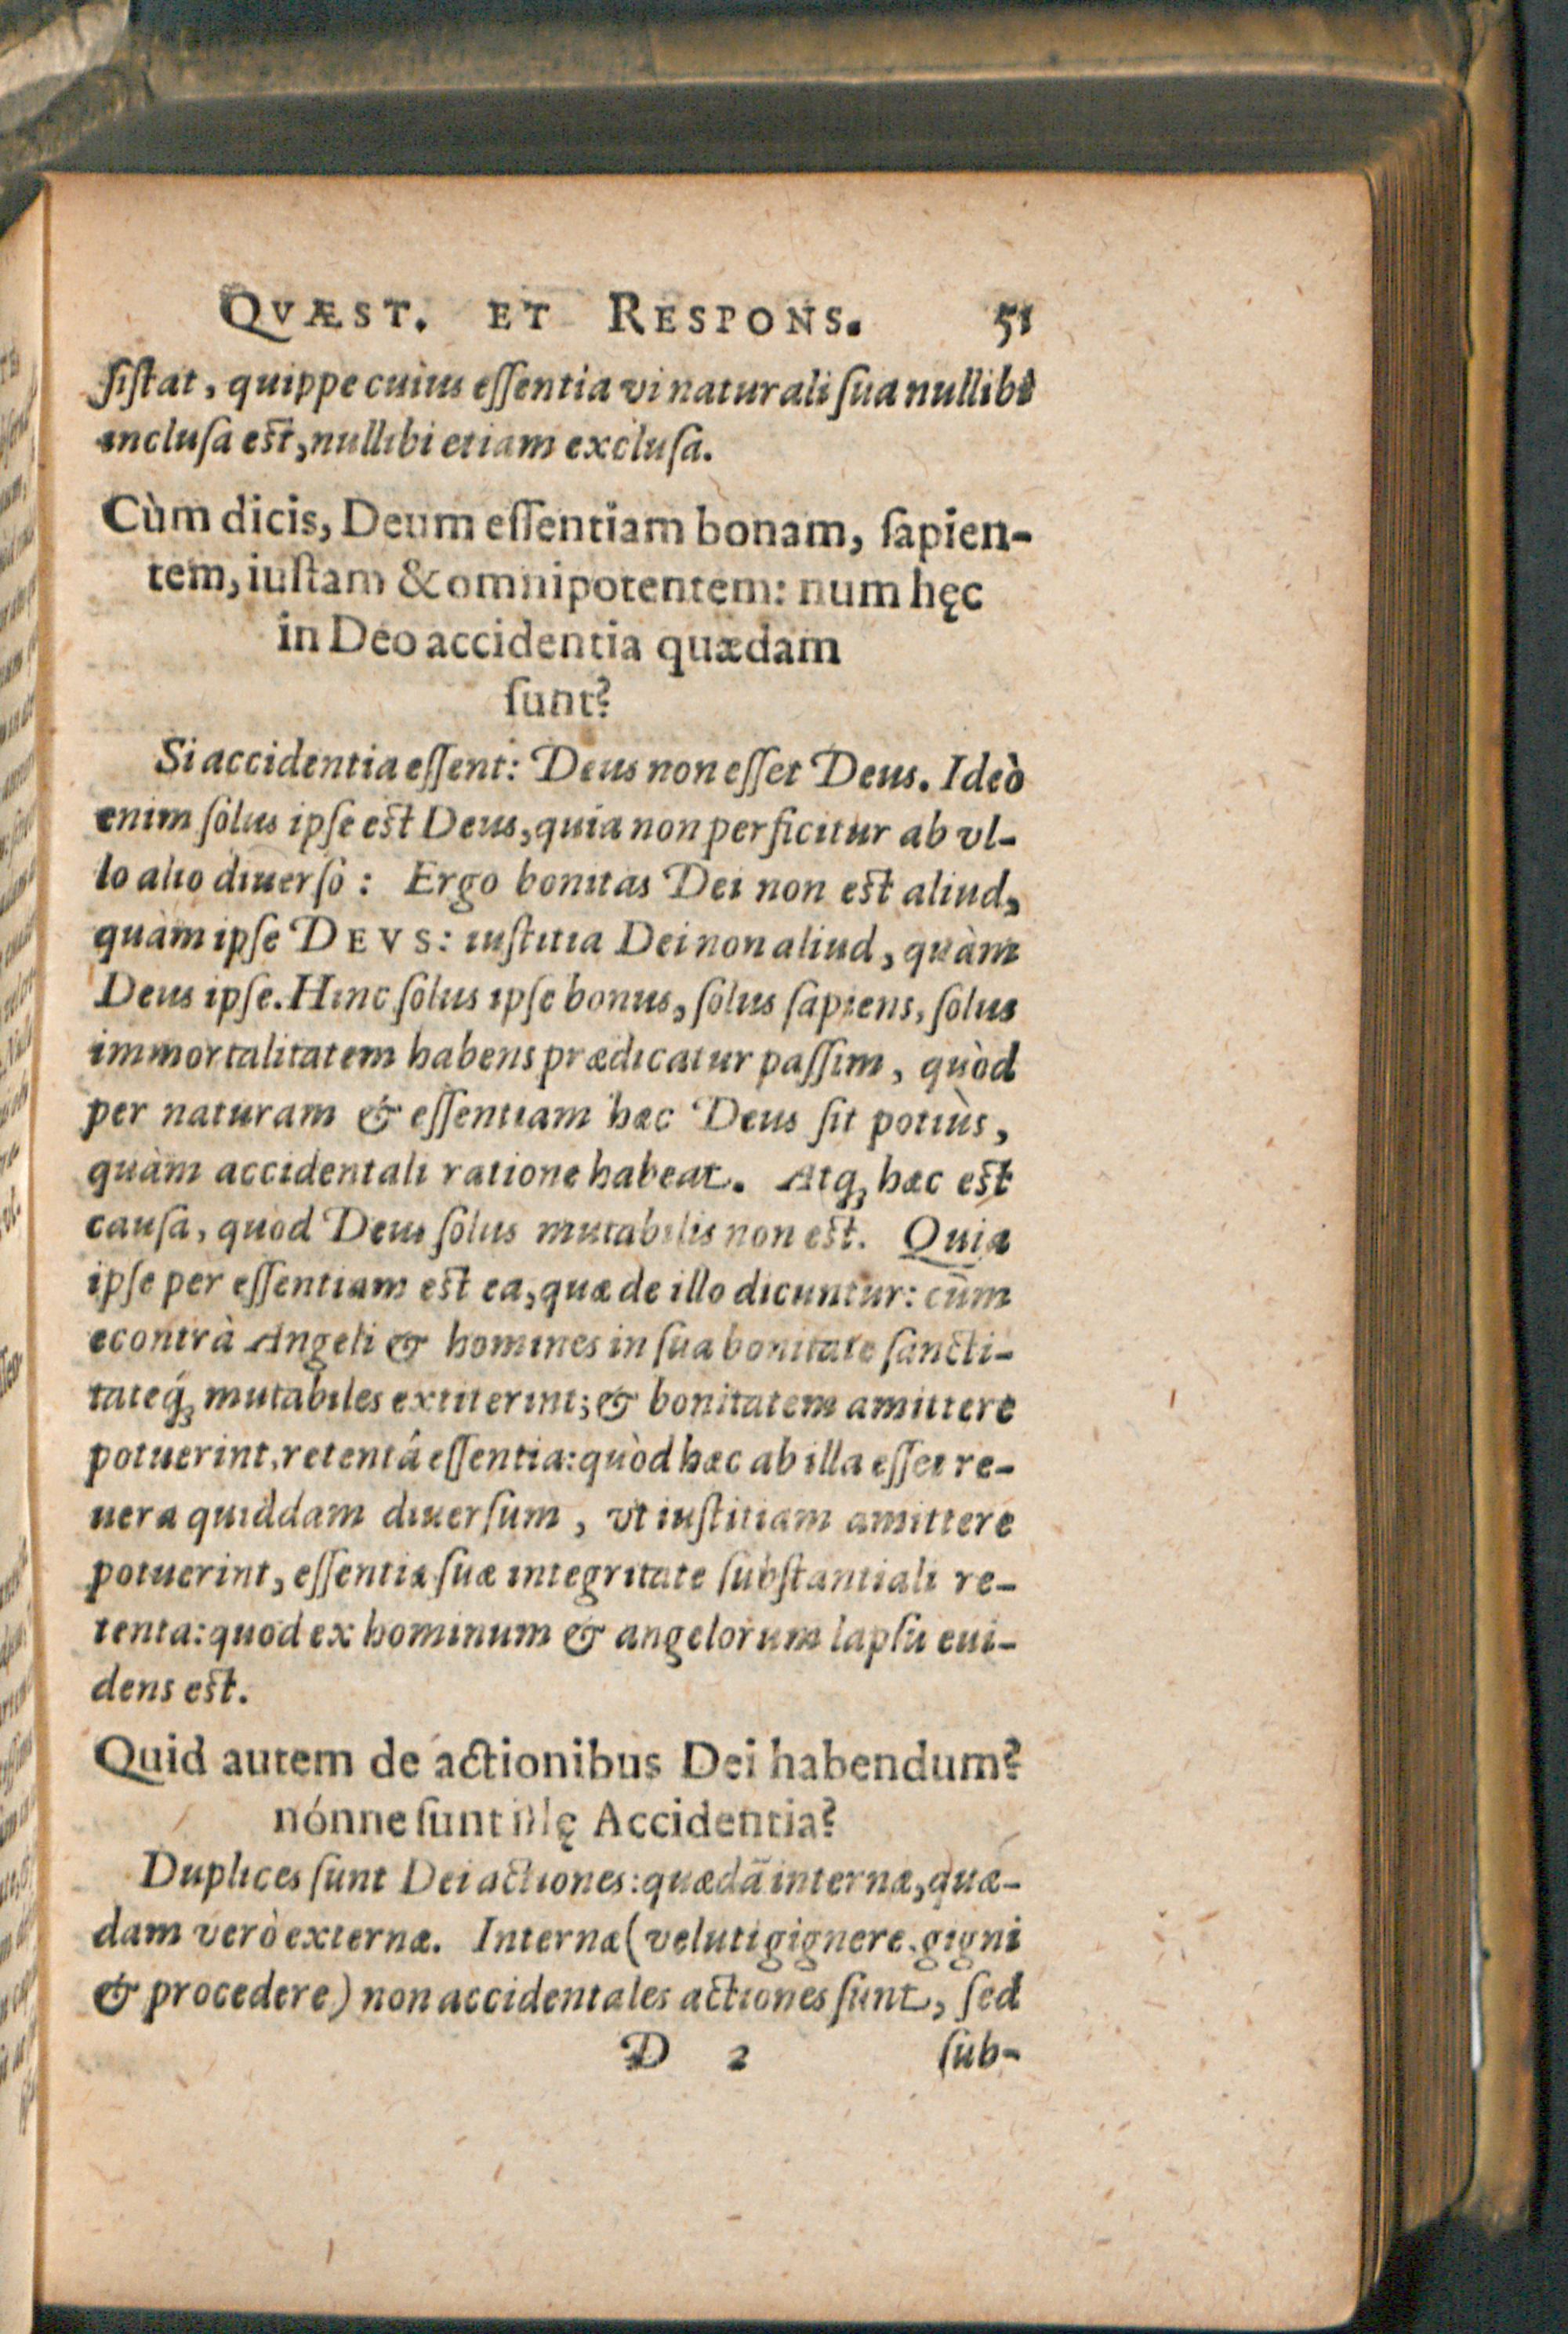 QVÆST. ET RESPONS. 51
ſiſtat, quippe cuius eſſentia vi naturali ſua nullibi
incluſa eſt, nullibi etiam excluſa.
Cùm dicis, Deum eſſentiam bonam, ſapien-
tem, iuſtam & omnipotentem: num hęc
in Deo accidentia quædam
ſunt?
Si accidentia eſſent: Deus non eſſet Deus. Ideò
enim ſolus ipſe eſt Deus, quia non perficitur ab vl-
lo alio diuerſo: Ergo bonitas Dei non eſt aliud,
quàm ipſe DEVS: iuſtitia Dei non aliud, quàm
Deus ipſe. Hinc ſolus ipſe bonus, ſolus ſapiens, ſolus
immortalitatem habens prædicatur paſſim, quòd
per naturam & eſſentiam hæc Deus ſit potiùs,
quàm accidentali ratione habeat. Atq; hæc eſt
cauſa, quod Deus ſolus mutabilis non eſt. Quia
ipſe per eſſentiam eſt ea, quæ de illo dicuntur: cùm
econtrà Angeli & homines in ſua bonitate ſancti-
tateq́; mutabiles extiterint; & bonitatem amittere
potuerint, retentá eſſentia: quòd hæc ab illa eſſet re-
uera quiddam diuerſum, vt iuſtitiam amittere
potuerint, eſſentiæ ſuæ integritate ſubſtantiali re-
tenta: quod ex hominum & angelorum lapſu eui-
dens eſt.
Quid autem de actionibus Dei habendum?
nónne ſunt illę Accidentia?
Duplices ſunt Dei actiones: quædã internæ, quæ-
dam verò externæ. Internæ (veluti gignere, gigni
& procedere) non accidentales actiones ſunt, ſed
D 2 ſub-